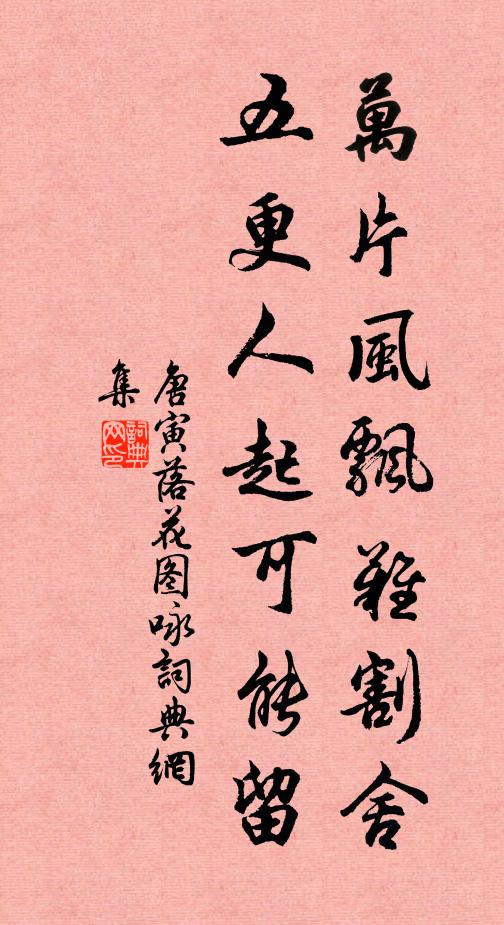 萬片風飄難割舍
五更人起可能留
唐寅落花图咏詞典網
集
詞典
网印